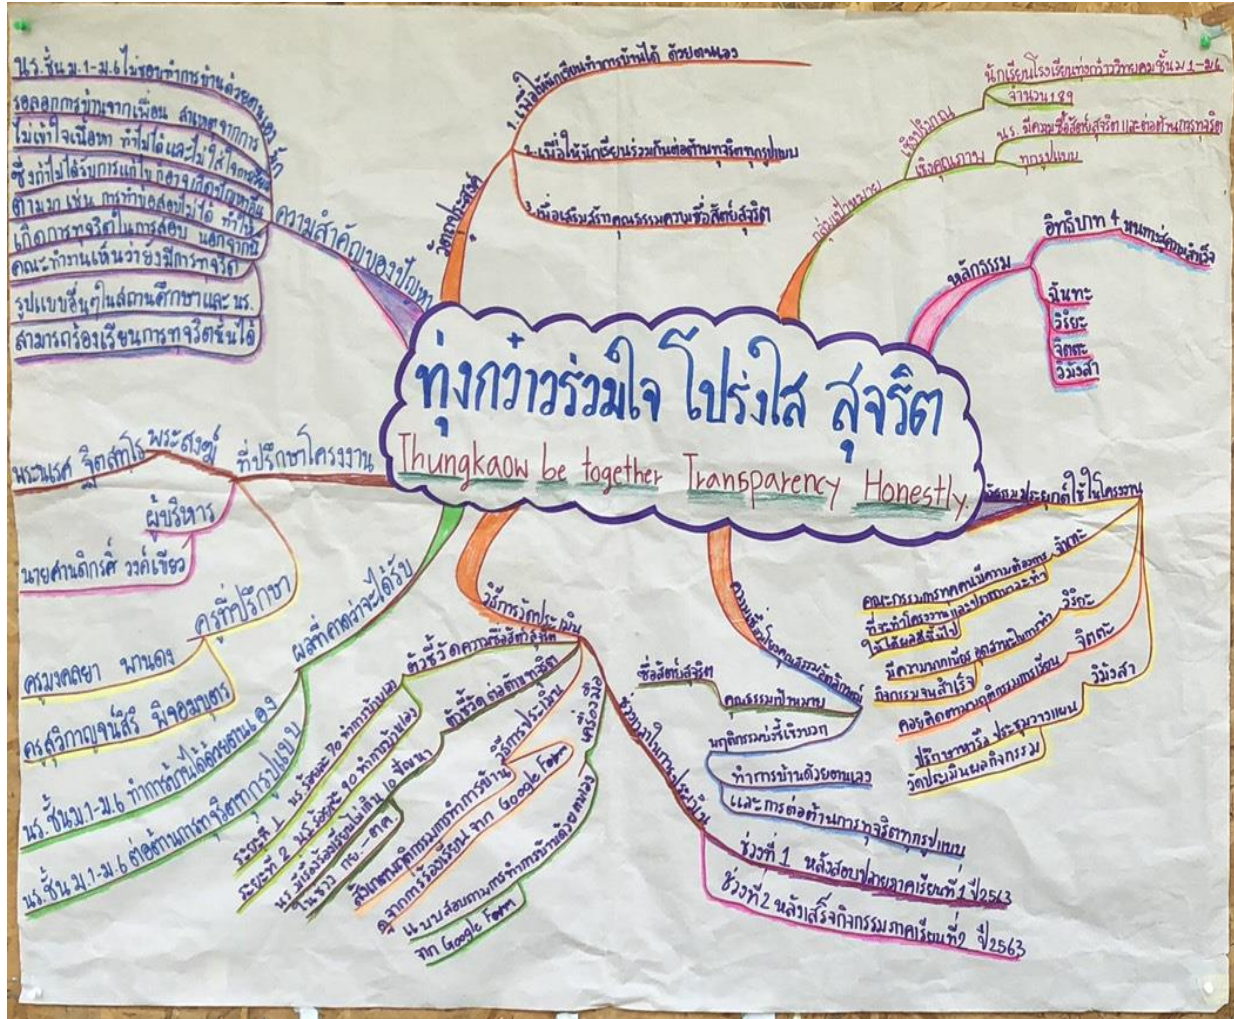 ทุ่งกว๋าวร่วมใจ โปร่งใส สุจริต
Thungkaow be together Transparency Honestly.
ความสำคัญของปัญหา
นร. ชั้น ม.1-ม.6 ไม่ชอบทำการบ้านด้วยตนเอง มัก
รอลอกการบ้านจากเพื่อน สาเหตุจากการ
ไม่เข้าใจเนื้อหา ทำไม่ได้ และไม่ใส่ใจการเรียน
ซึ่งถ้าไม่ได้รับการแก้ไข ก็อาจเกิดปัญหาอื่น
ตามมา เช่น การทำข้อสอบไม่ได้ ทำให้
เกิดการทุจริตในการสอบ นอกจากนี้
คณะทำงานเห็นว่ายังมีการทุจริต
รูปแบบอื่นๆในสถานศึกษาและ นร.
สามารถร้องเรียนการทุจริตนั้นได้
วัตถุประสงค์
1. เพื่อให้นักเรียนทำการบ้านได้ ด้วยตนเอง
2. เพื่อให้นักเรียนร่วมกันต่อต้านทุจริตทุกรูปแบบ
3. เพื่อเสริมสร้างคุณธรรมความซื่อสัตย์สุจริต
กลุ่มเป้าหมาย
เชิงปริมาณ
นักเรียนโรงเรียนทุ่งกว๋าววิทยาคม ชั้น ม.1-ม.6
จำนวน 189
เชิงคุณภาพ
นร. มีความซื่อสัตย์สุจริต และต่อต้านการทุจริต
ทุกรูปแบบ
หลักธรรม
อิทธิบาท 4 หนทางสู่ความสำเร็จ
ฉันทะ
วิริยะ
จิตตะ
วิมังสา
ประยุกต์ใช้ในโครงงาน
ฉันทะ
คณะกรรมการทุกคนมีความต้องการ
ที่จะทำโครงงาน และปรารถนาจะทำ
ให้ได้ผลดียิ่งไป
วิริยะ
มีความพากเพียร อุตสาหะในการทำ
กิจกรรมจนสำเร็จ
จิตตะ
คอยติดตามพฤติกรรมการเรียน
วิมังสา
ปรึกษาหารือ ประชุมวางแผน
วัดประเมินผลกิจกรรม
ความเชื่อมโยงคุณธรรมอัตลักษณ์
ซื่อสัตย์สุจริต
คุณธรรมเป้าหมาย
พฤติกรรมบ่งชี้เชิงบวก
ทำการบ้านด้วยตนเอง
และการต่อต้านการทุจริตทุกรูปแบบ
วิธีการวัดประเมิน
ช่วงเวลาในการประเมิน
ช่วงที่ 1 หลังสอบปลายภาคเรียนที่ 1 ปี 2563
ช่วงที่ 2 หลังเสร็จกิจกรรมภาคเรียนที่2 ปี 2563
ตัวชี้วัดความซื่อสัตว์สุจริต
ระยะที่ 1 นร. ร้อยละ 70 ทำการบ้านเอง
ระยะที่ 2 นร. ร้อยละ 90 ทำการบ้านเอง
ตัวชี้วัด ต่อต้านทุจริต
นร. มีเรื่องร้องเรียนไม่เกิน 10 ปัญหา
ในช่วง กย. - ตค
วิธีการประเมิน
สังเกตพฤติกรรมการทำการบ้าน
ดูจากการร้องเรียน จาก Google Form
เครื่องมือ
แบบสอบถามการทำการบ้านด้วยตนเอง
จาก Google Form
ผลที่คาดว่าจะได้รับ
นร. ชั้น ม.1-ม.6 ทำการบ้านได้ด้วยตนเอง
นร. ชั้น ม.1-ม.6 ต่อต้านการทุจริตทุกรูปแบบ
ที่ปรึกษาโครงงาน
พระสงฆ์
พระนเรศ ฐิตสทฺโธ
ผู้บริหาร
นายศานติกรศิ์ วงค์เขียว
ครูที่ปรึกษา
ครูมงคลยา พานดง
ครูสุวิกาญจน์สิริ พิจอมบุตร